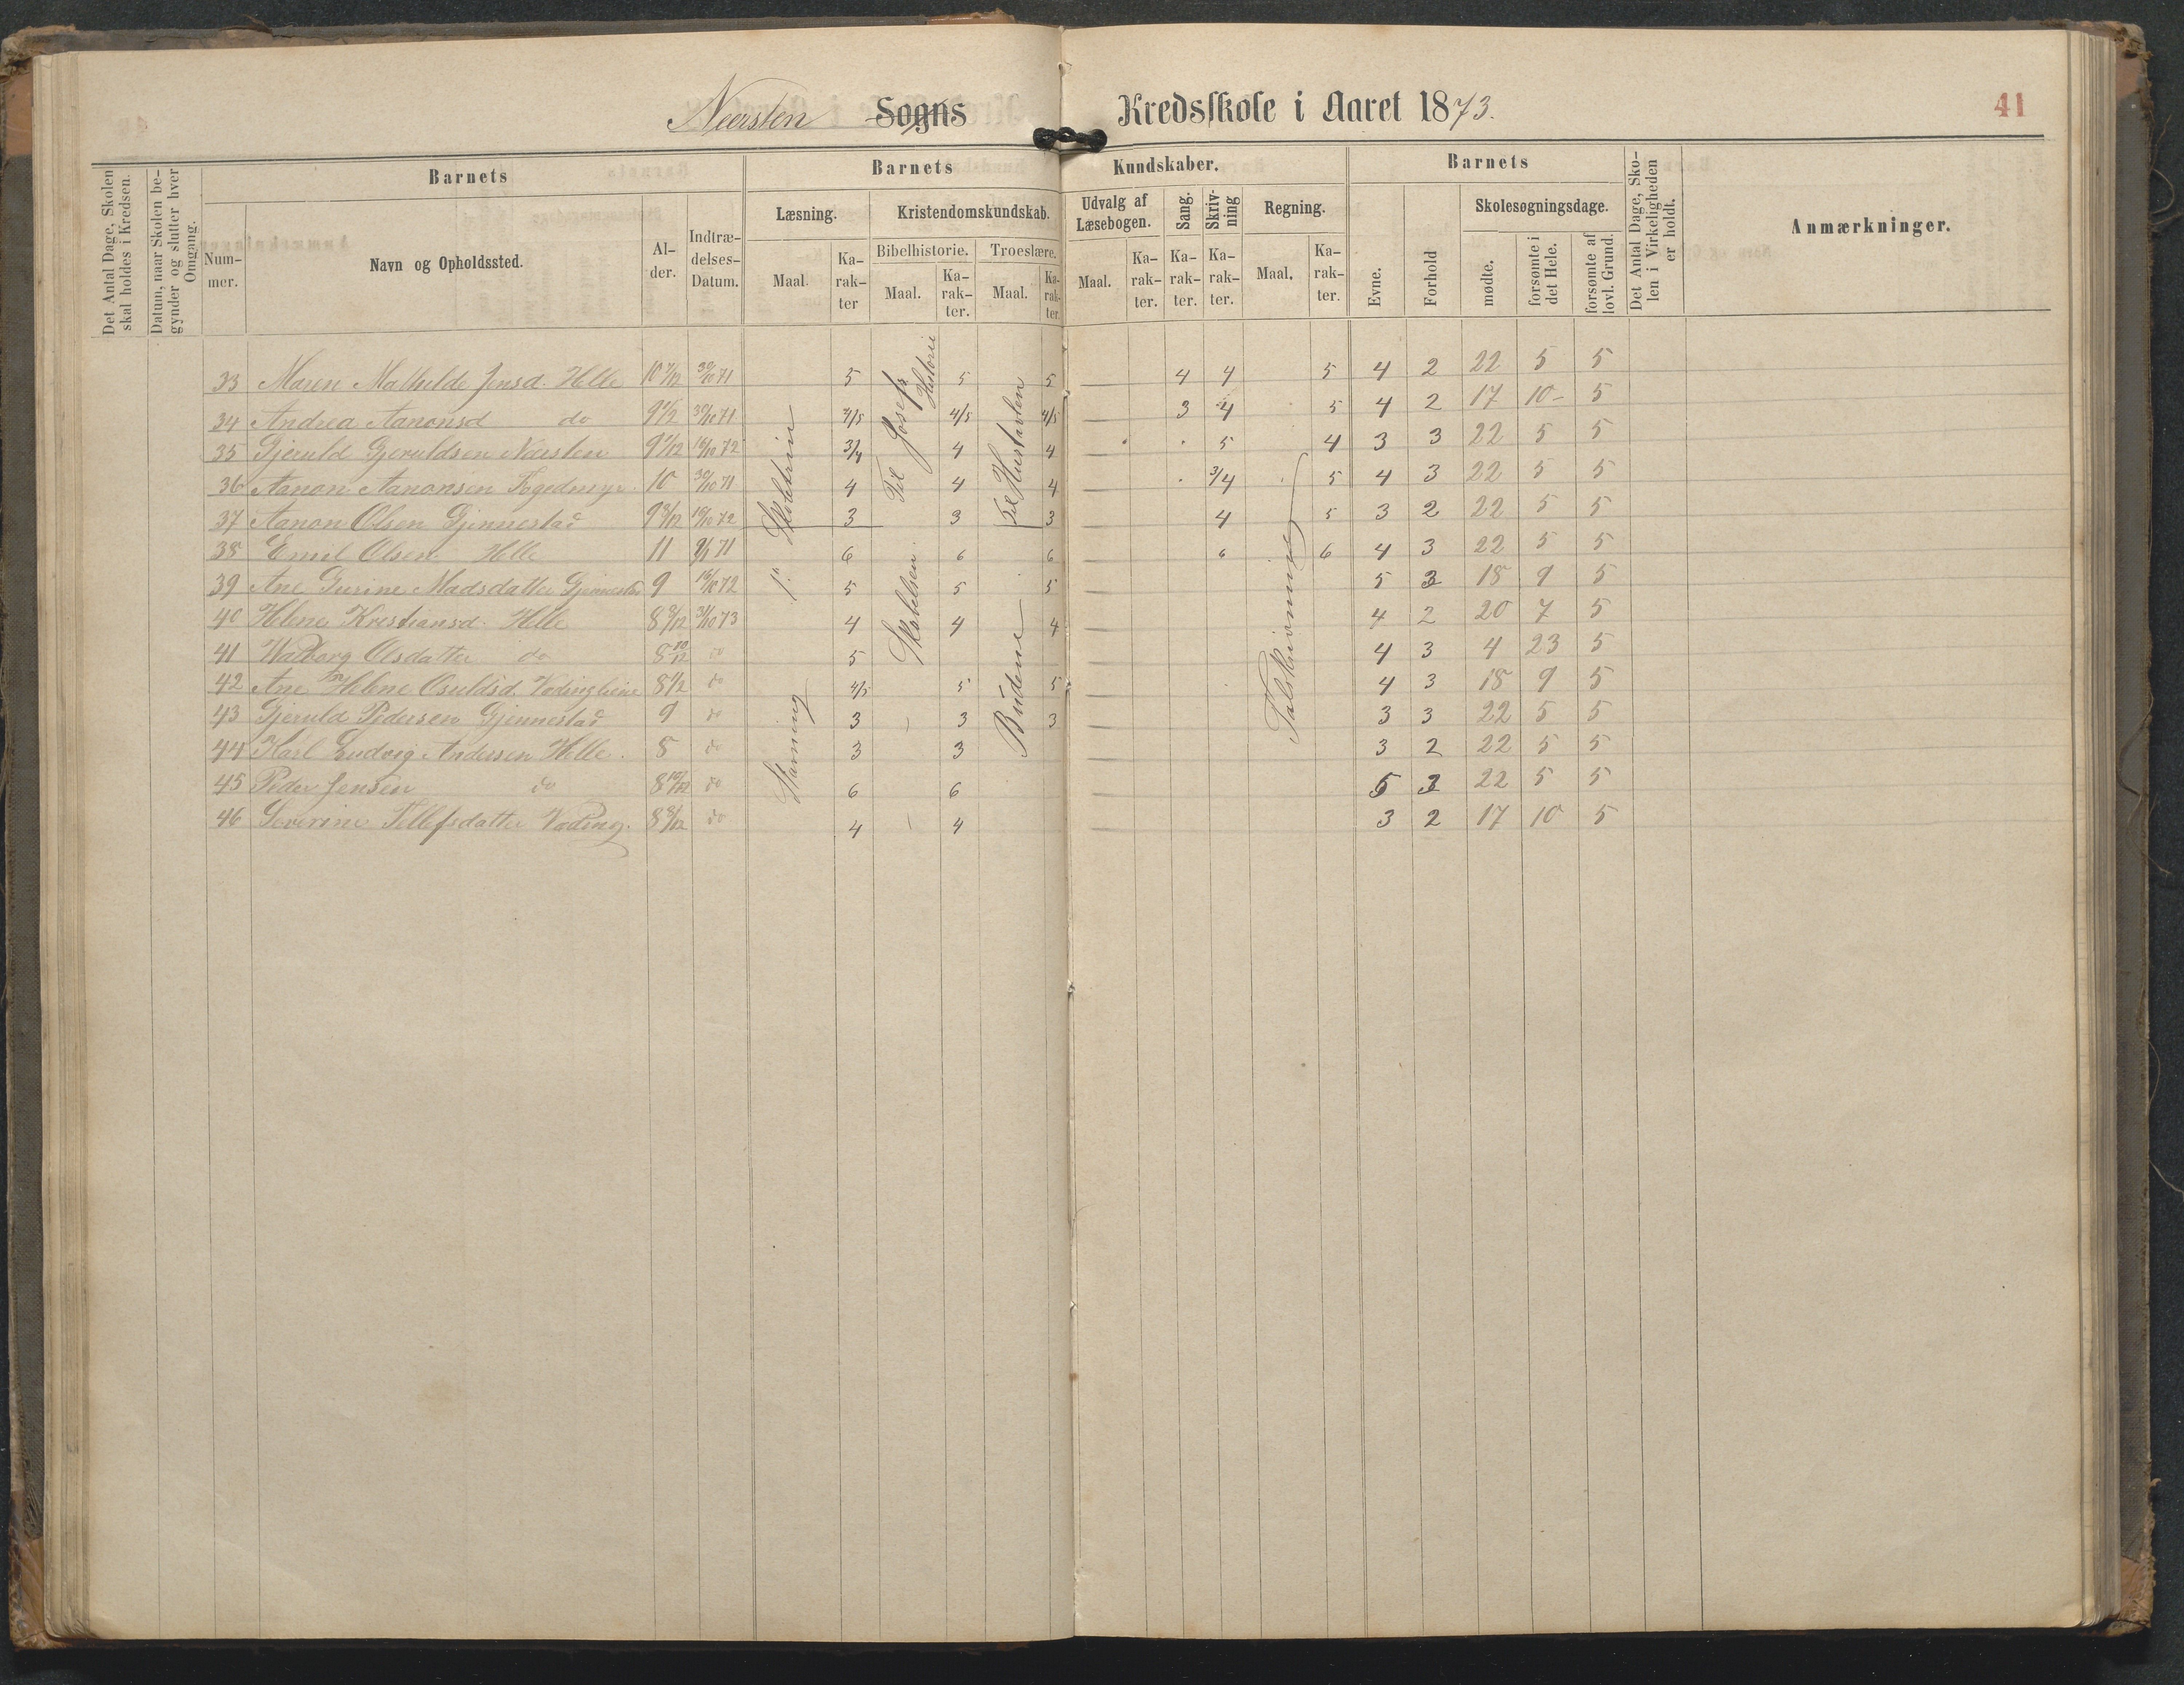 Neersten Sogns Kredsskole i Aaret 1873. 41
Det Antal Dage, Skolen skal holdes i Kredsen.
Datum, naar Skolen begynder og slutter hver Omgang.
Barnets
Nummer.
Navn og Opholdssted.
Alder.
Indtrædelses-Datum.
Barnets Kundskaber.
Læsning.
Maal. Karakter
Kristendomskundskab.
Bibelhistorie. Troeslære.
Maal. Karakter. Maal. Karakter.
Udvalg af Læsebogen.
Maal. Karakter.
Sang. Karakter.
Skrivning Karakter.
Regning.
Maal. Karakter.
Barnets
Evne. Forhold
Skolesøgningsdage.
mødte. forsømte i det Hele. forsømte af lovl. Grund.
Det Antal Dage, Skolen i Virkeligheden er holdt.
Anmærkninger.
33 Maren Mathilde Jensd. Helle 10 7/12 30/10 71 5 5 5 4 4 5 4 2 22 5 5
34 Andrea Aanonsd do 9 1/2 30/10 71 4/5 4/5 4/5 3 4 5 4 2 17 10 5
35 Gjeruld Gjeruldsen Neersten 9 1/12 16/10 72 3/4 4 4 5 4 3 3 22 5 5
36 Aanon Aanonsen 10 30/10 71 4 4 4 3/4 5 4 3 22 5 5
37 Aanon Olsen Gjennestad 9 3/12 16/10 72 3 3 3 4 5 3 2 22 5 5
38 Emil Olsen Helle 11 71 6 6 6 6 6 4 3 22 5 5
39 Ane Gurine Madsdatter Gjennestad 9 16/10 72 5 5 5 5 3 18 9 5
40 Helene Kristiansd. Helle 8 8/12 31/10 73 4 4 4 4 2 20 7 5
41 Walborg Olsdatter do 8 10/12 do 5 4 3 4 23 5
42 Ane Helene Osuldsd. 8 1/2 do 4/5 5 5 4 3 18 9 5
43 Gjeruld Pedersen Gjennestad 9 do 3 3 3 3 3 22 5 5
44 Karl Ludvig Andersen Helle. 8 do 3 3 3 2 22 5 5
45 Peder Jensen do 8 10/12 do 6 6 5 3 22 5 5
46 Severine Tellefsdatter Vading. 8 8/12 do 4 4 3 2 17 10 5
1ste Skoletrin
Stavning
Til Josefs Historie
Skabelsen
Til Hustavlen
Budene
Talskrivning